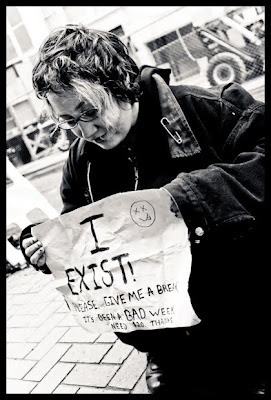 I
EXIST!
PLEASE GIVE ME A BREA
IT'S BEEN A BAD WEEK
NEED THANKS